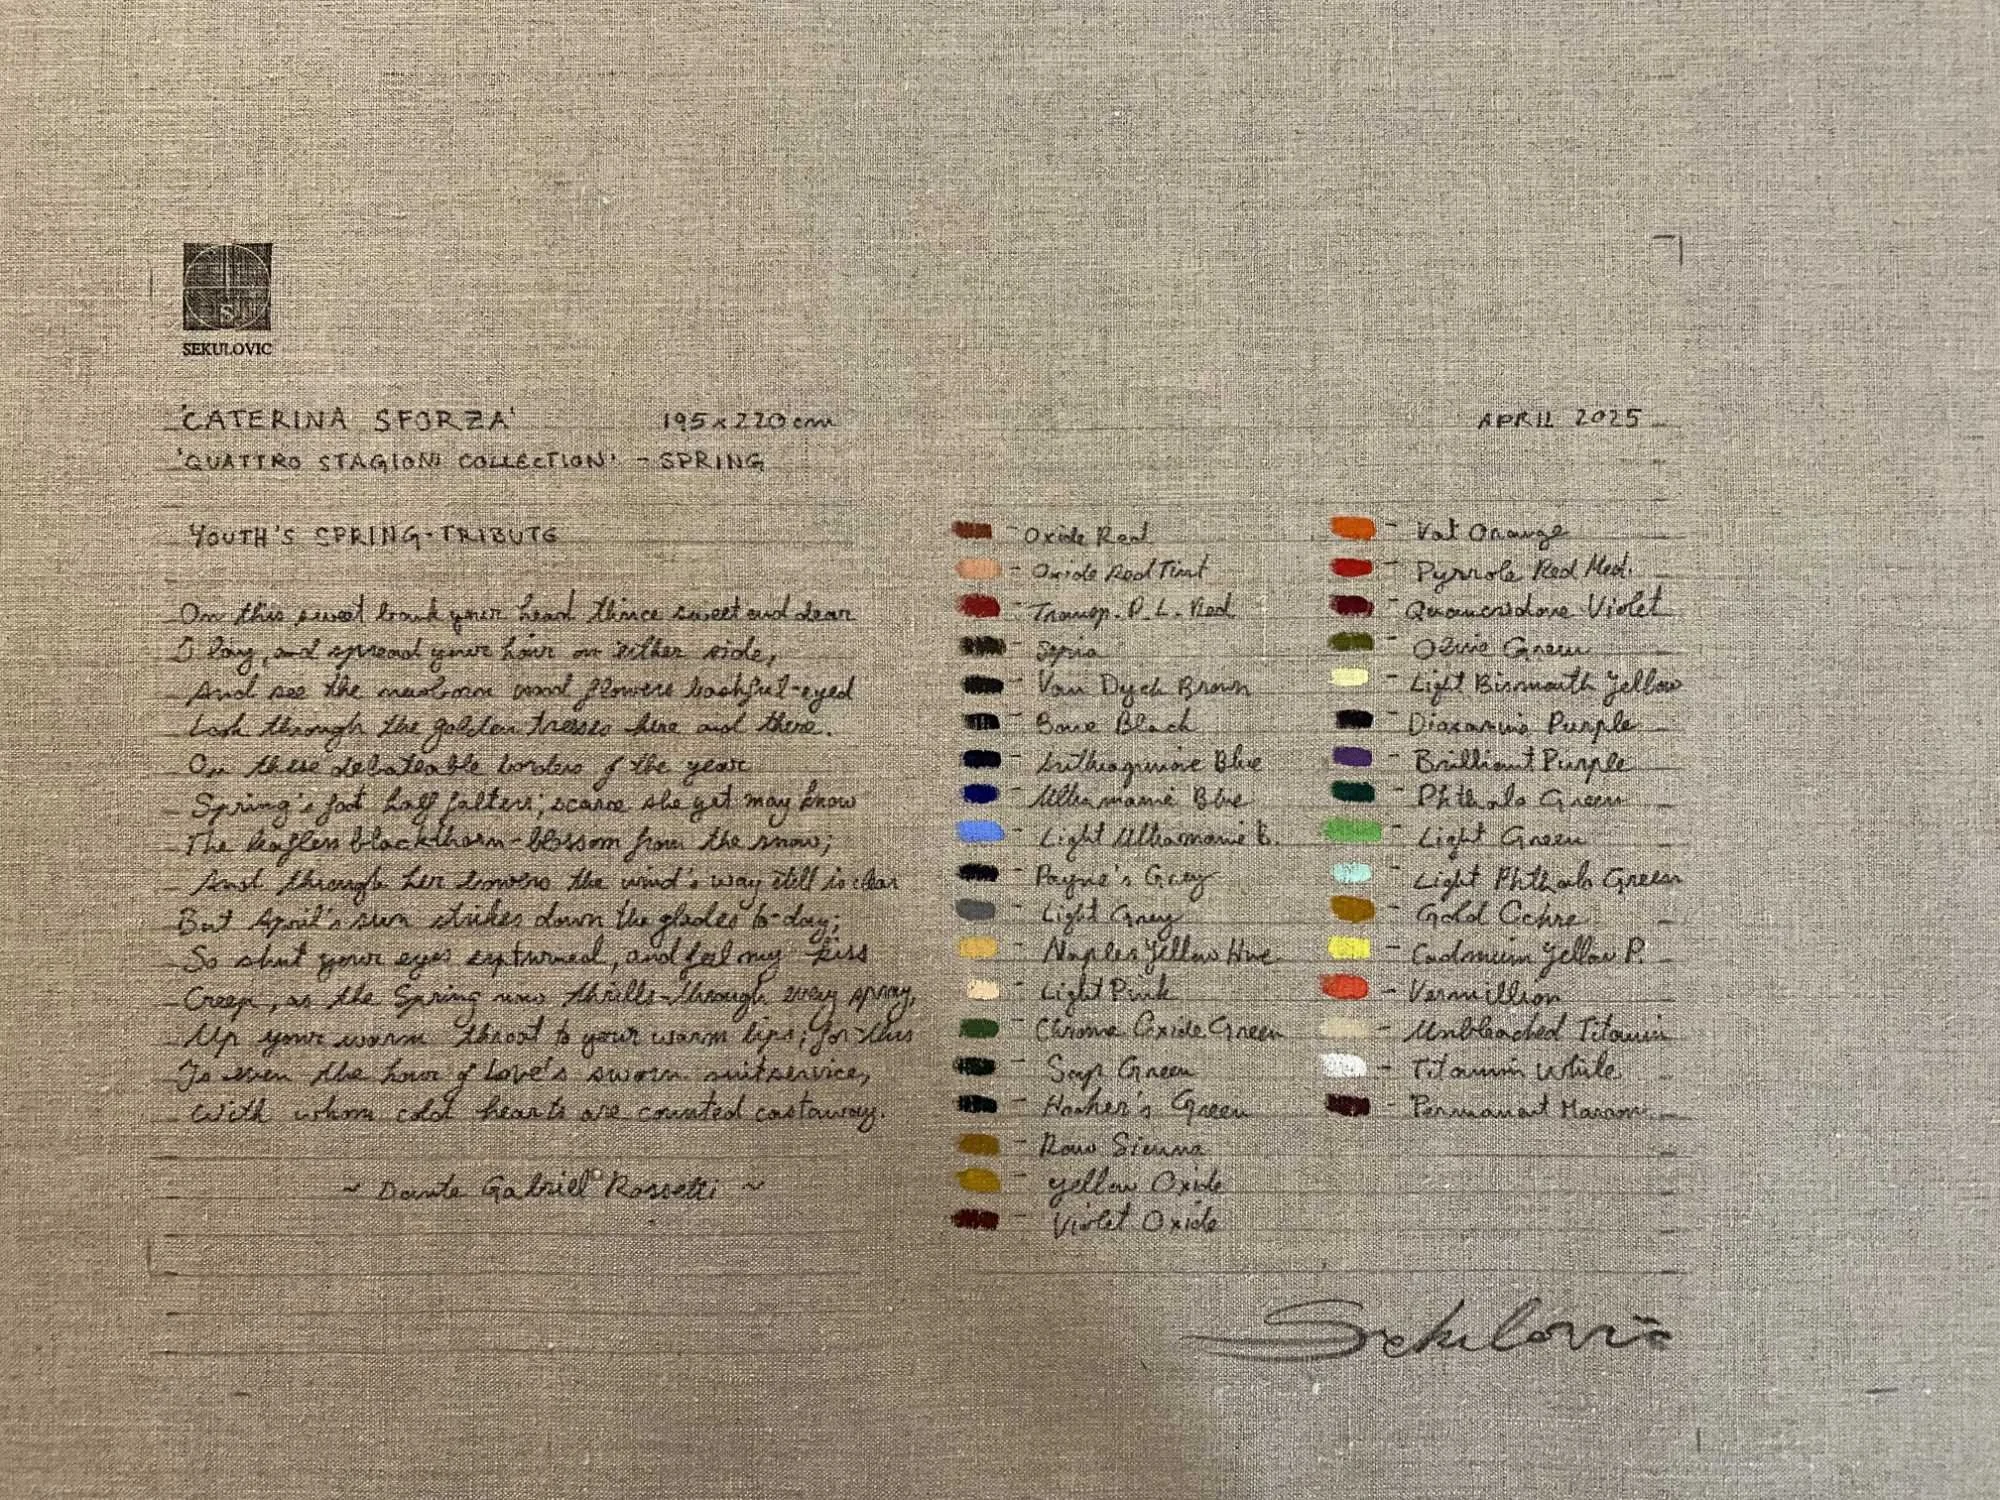 SEKULOVIC
'CATERINA SFORZA' 195x220cm APRIL 2025
'QUATTRO STAGIONI COLLECTION' - SPRING
YOUTH'S SPRING-TRIBUTE
On this sweet bank your head thrice sweet and dear
I lay, and spread your hair on either side,
And see the newborn wood flowers bashful-eyed
Look through the golden tresses here and there.
On these debateable borders of the year
Spring's foot half falters; scarce she yet may know
The leafless blackthorn-blossom from the snow;
And through her bowers the wind's way still is clear
But April's sun strikes down the glades to-day;
So shut your eyes upturned, and feel my kiss
Creep, as the Spring now thrills through every spray,
Up your warm throat to your warm lips; for this
Is even the hour of Love's sworn suitservice,
With whom cold hearts are counted castaway.
~ Dante Gabriel Rossetti ~
- Oxide Red
- Oxide Red Tint
- Transp. P. L. Red
- Sepia
- Van Dyck Brown
- Bone Black
- Anthraquinone Blue
- Ultramarine Blue
- Light Ultramarine B.
- Payne's Grey
- Light Grey
- Naples Yellow Hue
- Light Pink
- Chrome Oxide Green
- Sap Green
- Hooker's Green
- Raw Sienna
- Yellow Oxide
- Violet Oxide
- Vat Orange
- Pyrrole Red Med.
- Quanacridone Violet
- Olive Green
- Light Bismouth Yellow
- Dioxanine Purple
- Brilliant Purple
- Phthalo Green
- Light Green
- Light Phthalo Green
- Gold Ochre
- Cadmium Yellow P.
- Vermillion
- Unbleached Titanium
- Titanium White
- Permanant Maroon
Sekulovic